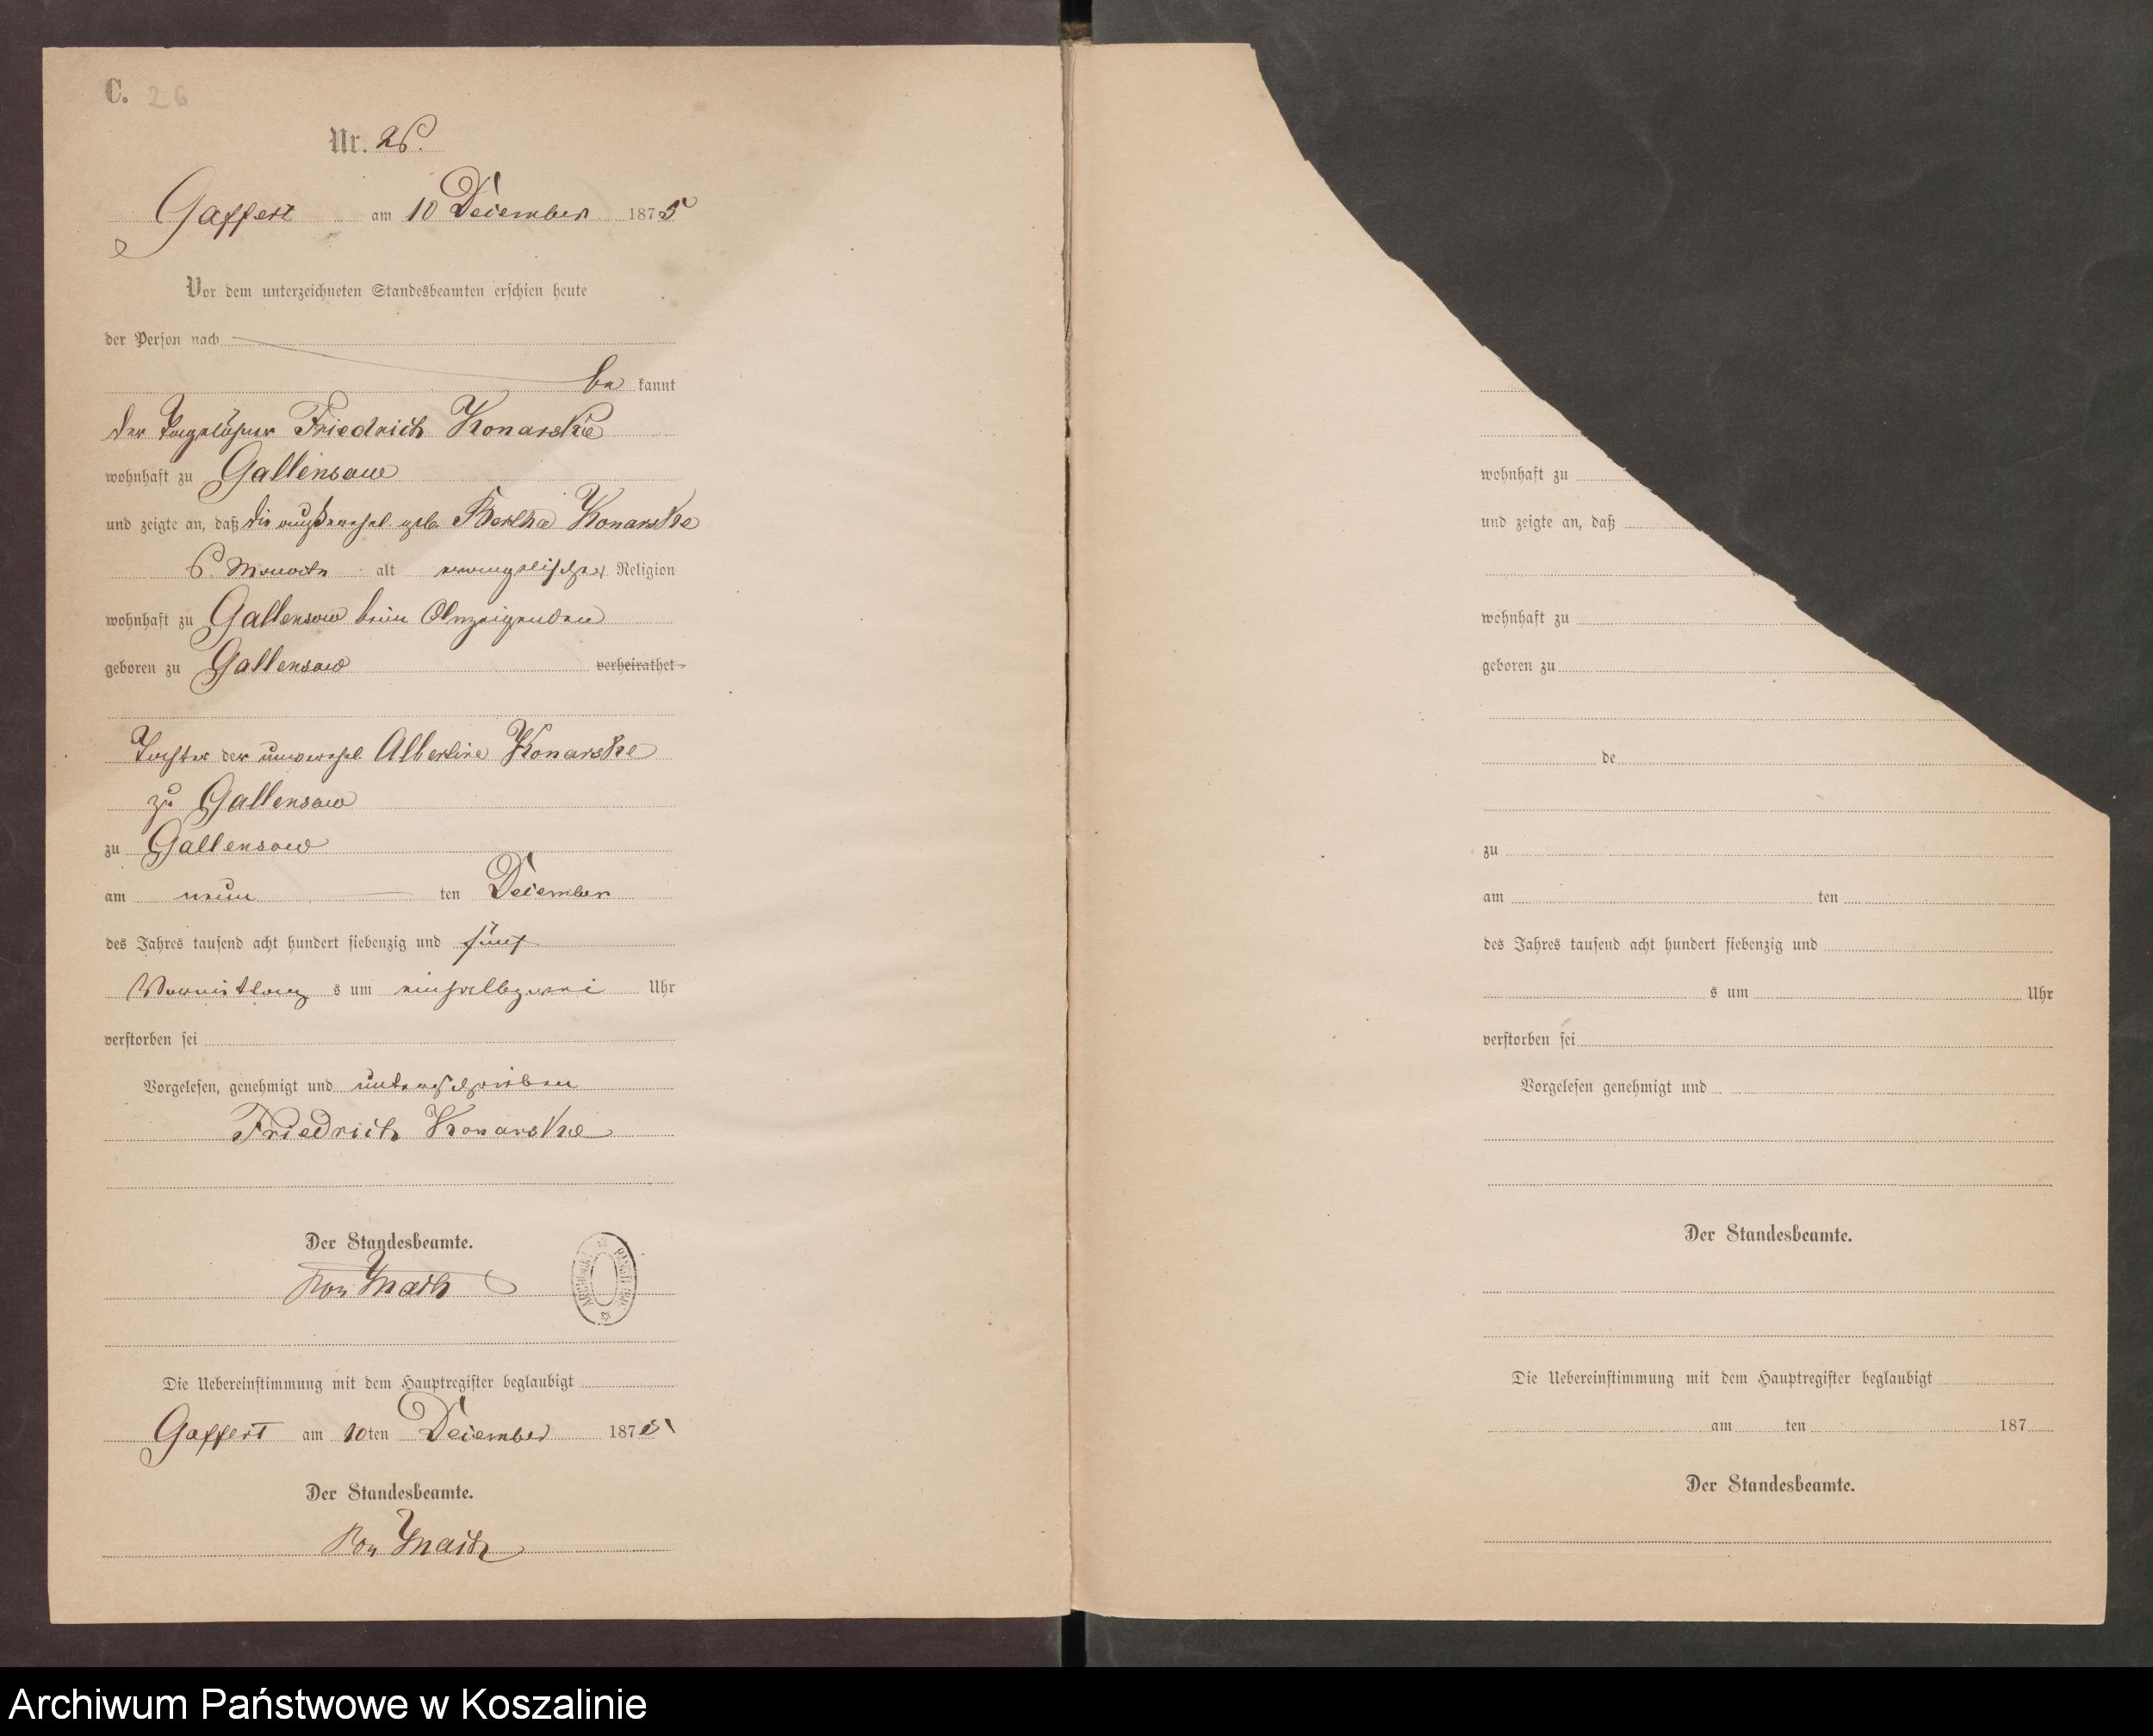 C. 26
Nr. 26.
Gaffert am 10 December 1875
Vor dem unterzeichneten Standesbeamten erschien heute
der Person nach
be kannt
der Tagelöhner Friedrich Konarske
wohnhaft zu Gallensow
und zeigte an, daß die außerehel geb. Bertha Konarske
6 Monate alt evangelischer Religion
wohnhaft zu Gallensow beim Anzeigenden
geboren zu Gallensow verheirathet
Tochter der unverehel Albertine Konarske
zu Gallensow
zu Gallensow
am neun ten December
des Jahres tausend acht hundert siebenzig und fünf
Vormittag s um einhalbzwei Uhr
verstorben sei
Vorgelesen, genehmigt und unterschrieben
Friedrich Konarske
Der Standesbeamte.
von
Die Uebereinstimmung mit dem Hauptregister beglaubigt
Gaffert am 10ten December 1875
Der Standesbeamte.
von
wohnhaft zu
und zeigte an, daß
wohnhaft zu
geboren zu
de
zu
am ten
des Jahres tausend acht hundert siebenzig und
s um Uhr
verstorben sei
Vorgelesen genehmigt und
Der Standesbeamte.
Die Uebereinstimmung mit dem Hauptregister beglaubigt
am ten 187
Der Standesbeamte.
Archiwum Państwowe w Koszalinie